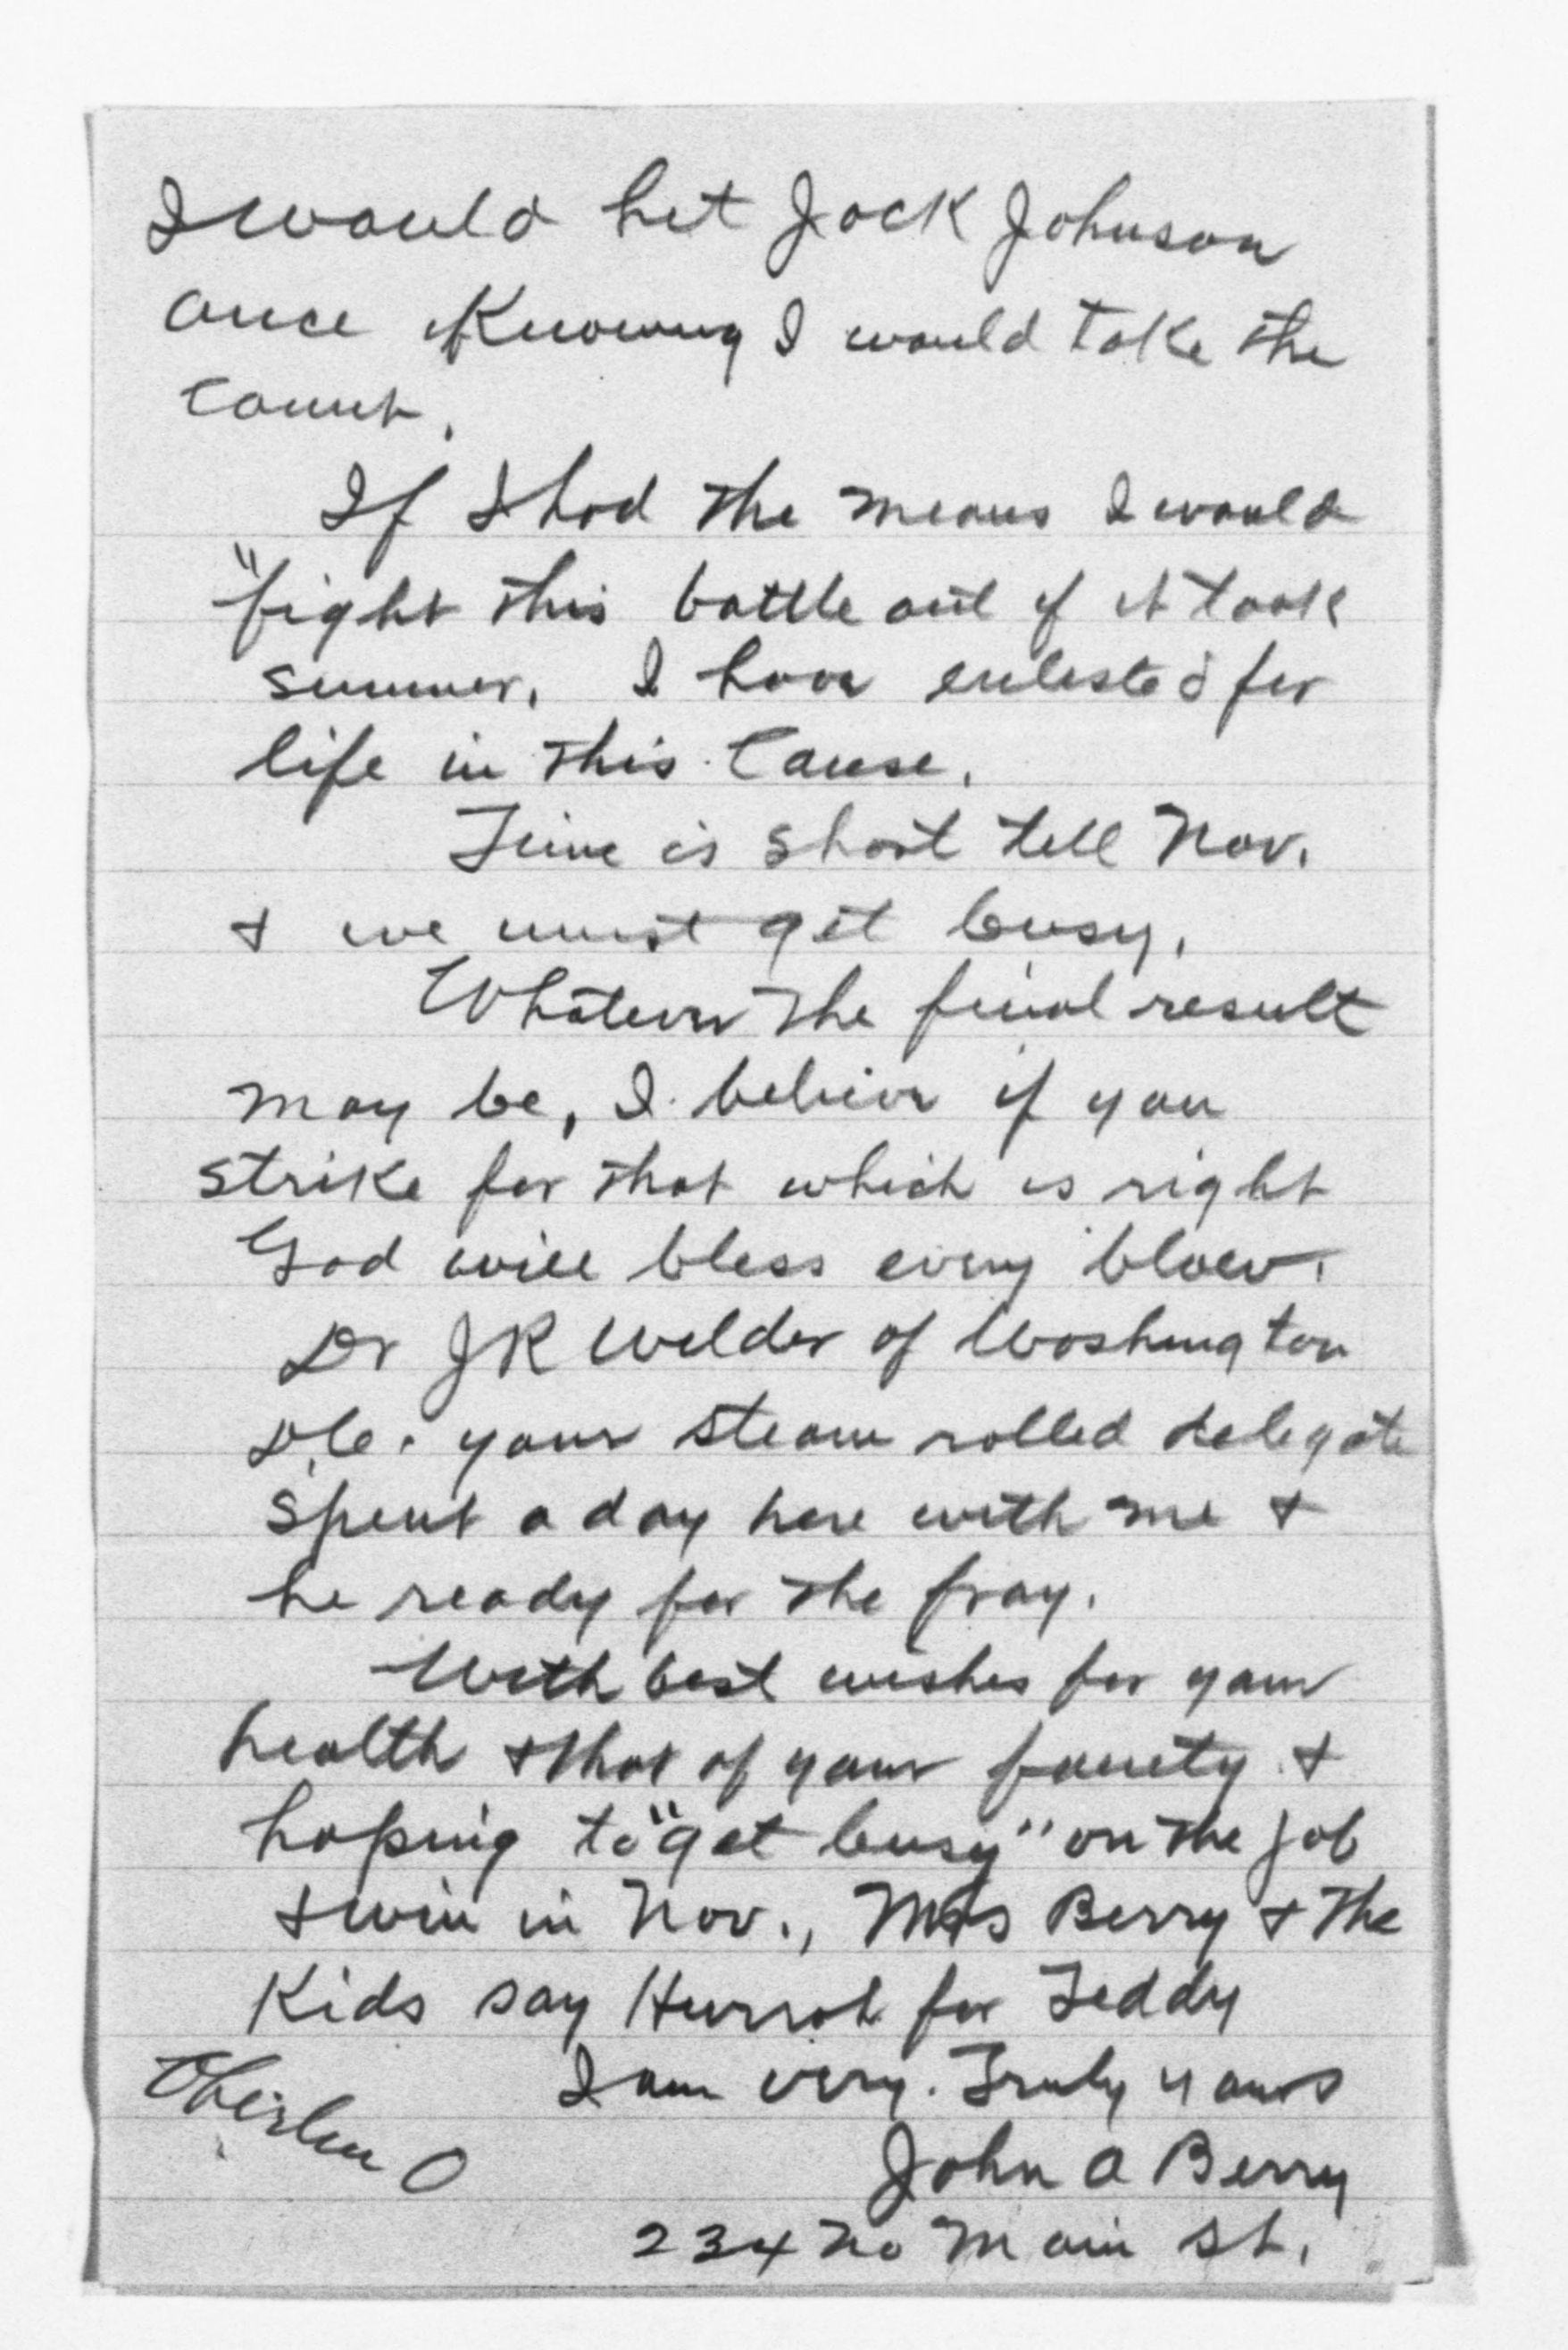 I would hit Jack Johnson
once knowing I would take the
count.
If I had the means I would
"fight this battle out if it took
summer. I have enlisted for
life in this cause.
Time is short till Nov.
& we must get busy.
Whatever the final result
may be, I believe if you
strike for that which is right
God will bless every blow.
Dr JR Wilder of Washington
D.C. your steam rolled delegate
spent a day here with me &
he ready for the fray.
With best wishes for your
health & that of your family &
hoping to "get busy" on the job
& win in Nov., Mrs Berry & the
Kids say Hurrah for Teddy
I am very Truly yours
Oberlin O
John A Berry
234 No Main St.